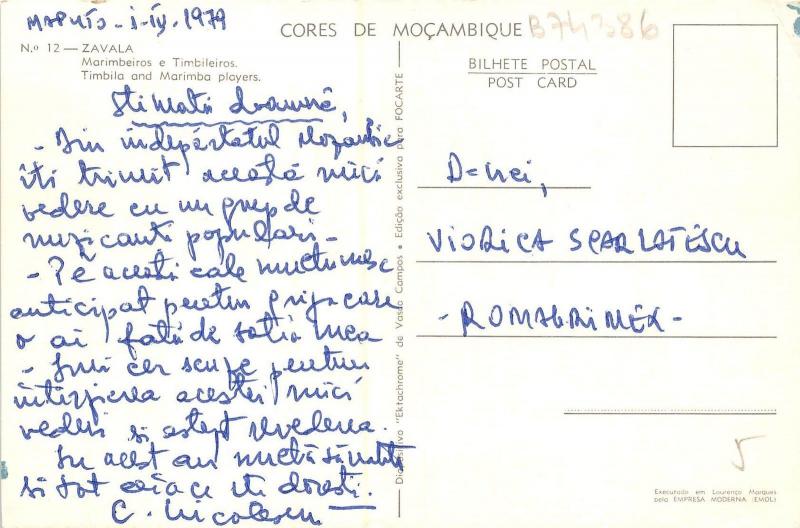 MAPUTO - 1-IV-1979
CORES DE MOÇAMBIQUE
B74386
N.º 12 — ZAVALA
Marimbeiros e Timbileiros.
Timbila and Marimba players.
BILHETE POSTAL
POST CARD
Stimată doamnă,
- Din indepărtatul Mozambic
iti trimit această mică
vedere cu un grup de
muzicanti populari -
- Pe acestă cale multumesc
anticipat pentru grija care
o ai fată de sotia mea
- Imi cer scuze pentru
intirzierea acestei mici
vederi si astept revederea.
In acest an multă sănătate
si tot ceia ce iti doresti.
C. Nicolescu
Diapositivo "Ektachrome" de Vasco Campos • Edição exclusiva para FOCARTE
D-nei,
VIORICA SCARLATESCU
- ROMAGRIMEX -
5
Executado em Lourenço Marques
pela EMPRESA MODERNA (EMOL)